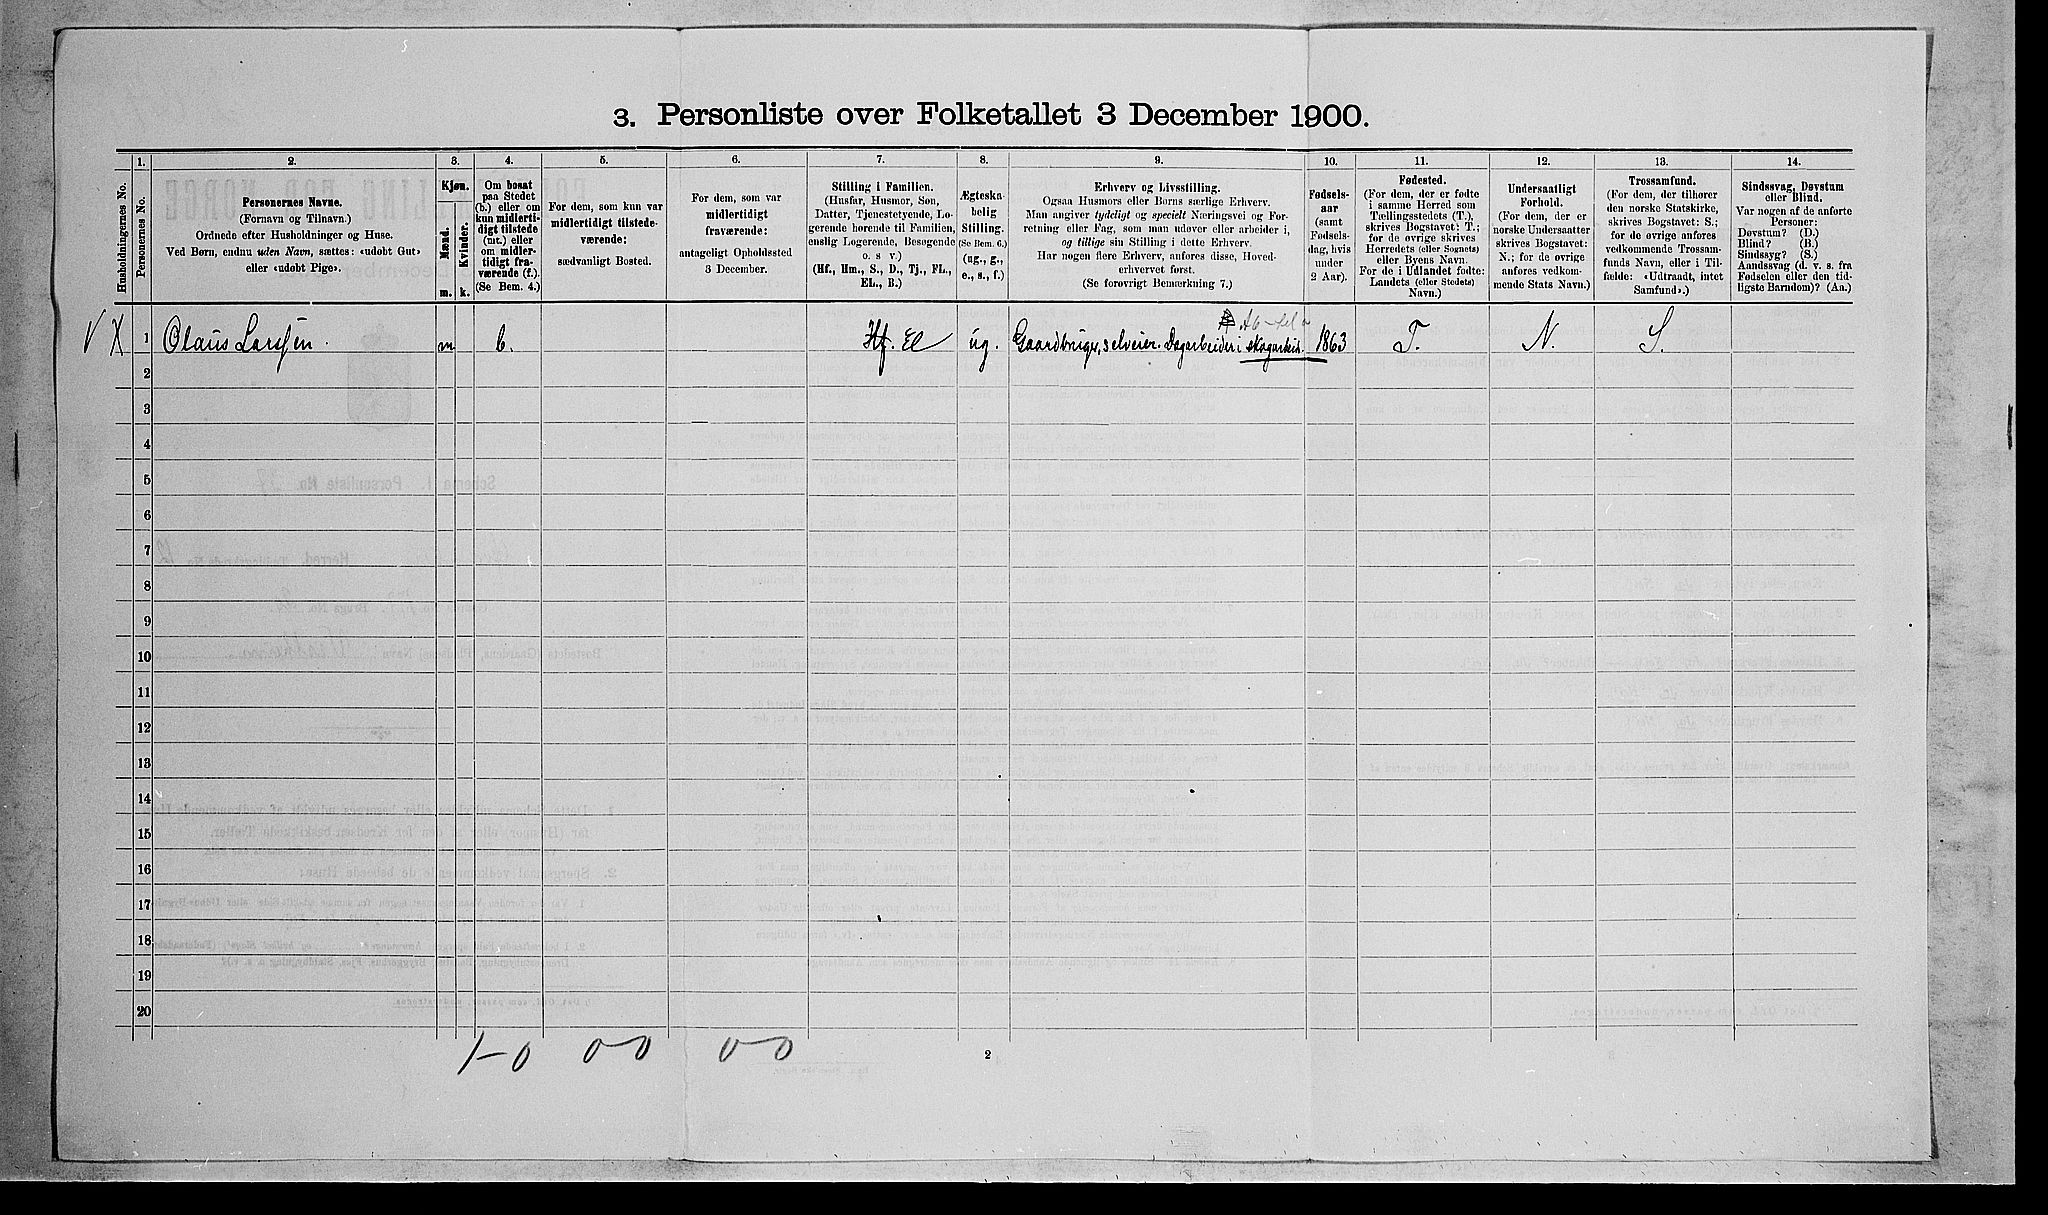 3. Personliste over Folketallet 3 December 1900.
Husholdningernes No.
1.
Personernes No.
2.
Personernes Navne.
(Fornavn og Tilnavn.)
Ordnede efter Husholdninger og Huse.
Ved Børn, endnu uden Navn, sættes: «udøbt Gut»
eller «udøbt Pige».
3.
Kjøn.
Mænd.
Kvinder.
m.
k.
4.
Om bosat
paa Stedet
(b.) eller om
kun midlerti-
digt tilstede
(mt.) eller
om midler-
tidigt fra-
værende (f.).
(Se Bem. 4.)
5.
For dem, som kun var
midlertidigt tilstede-
værende:
sædvanligt Bosted.
6.
For dem, som var
midlertidigt
fraværende:
antageligt Opholdssted
3 December.
7.
Stilling i Familien.
(Husfar, Husmor, Søn,
Datter, Tjenestetyende, Lo-
gerende hørende til Familien,
enslig Logerende, Besøgende
o. s v.)
(Hf., Hm., S., D., Tj., FL.,
EL., B.)
8.
Ægteska-
belig
Stilling.
(Se Bem. 6.)
(ug., g.,
e., s., f.)
9.
Erhverv og Livsstilling.
Ogsaa Husmors eller Børns særlige Erhverv.
Man angiver tydeligt og specielt Næringsvei og For-
retning eller Fag, som man udøver eller arbeider i,
og tillige sin Stilling i dette Erhverv.
Har nogen flere Erhverv, anføres disse, Hoved-
erhvervet først.
(Se forøvrigt Bemærkning 7.)
10.
Fødsels-
aar
(samt
Fødsels-
dag, hvis
under
2 Aar).
11.
Fødested.
(For dem, der er fødte
i samme Herred som
Tællingsstedets (T.),
skrives Bogstavet: T.;
for de øvrige skrives
Herredets (eller Sognets)
eller Byens Navn.
For de i Udlandet fødte:
Landets (eller Stedets)
Navn.)
12.
Undersaatligt
Forhold.
(For dem, der er
norske Undersaatter
skrives Bogstavet:
N.; for de øvrige
anføres vedkom-
mende Stats Navn.)
13.
Trossamfund.
(For dem, der tilhører
den norske Statskirke,
skrives Bogstavet: S.;
for de øvrige anføres
vedkommende Trossam-
funds Navn, eller i Til-
fælde: «Udtraadt, intet
Samfund».)
14.
Sindssvag, Døvstum
eller Blind.
Var nogen af de anførte
Personer:
Døvstum? (D.)
Blind? (B.)
Sindssyg? (S.)
Aandssvag (d. v. s. fra
Fødselen eller den tid-
ligste Barndom)? (Aa.)
V X 1 Olaus Larssen. m b. Hf. El ug. Gaardbruger, selveier. Dagarbeider i skogarbeide. 1863 T. N. S.
2
3
4
5
6
7
8
9
10
11
12
13
14
15
16
17
18
19
20
1-0 0-0 0-0
2